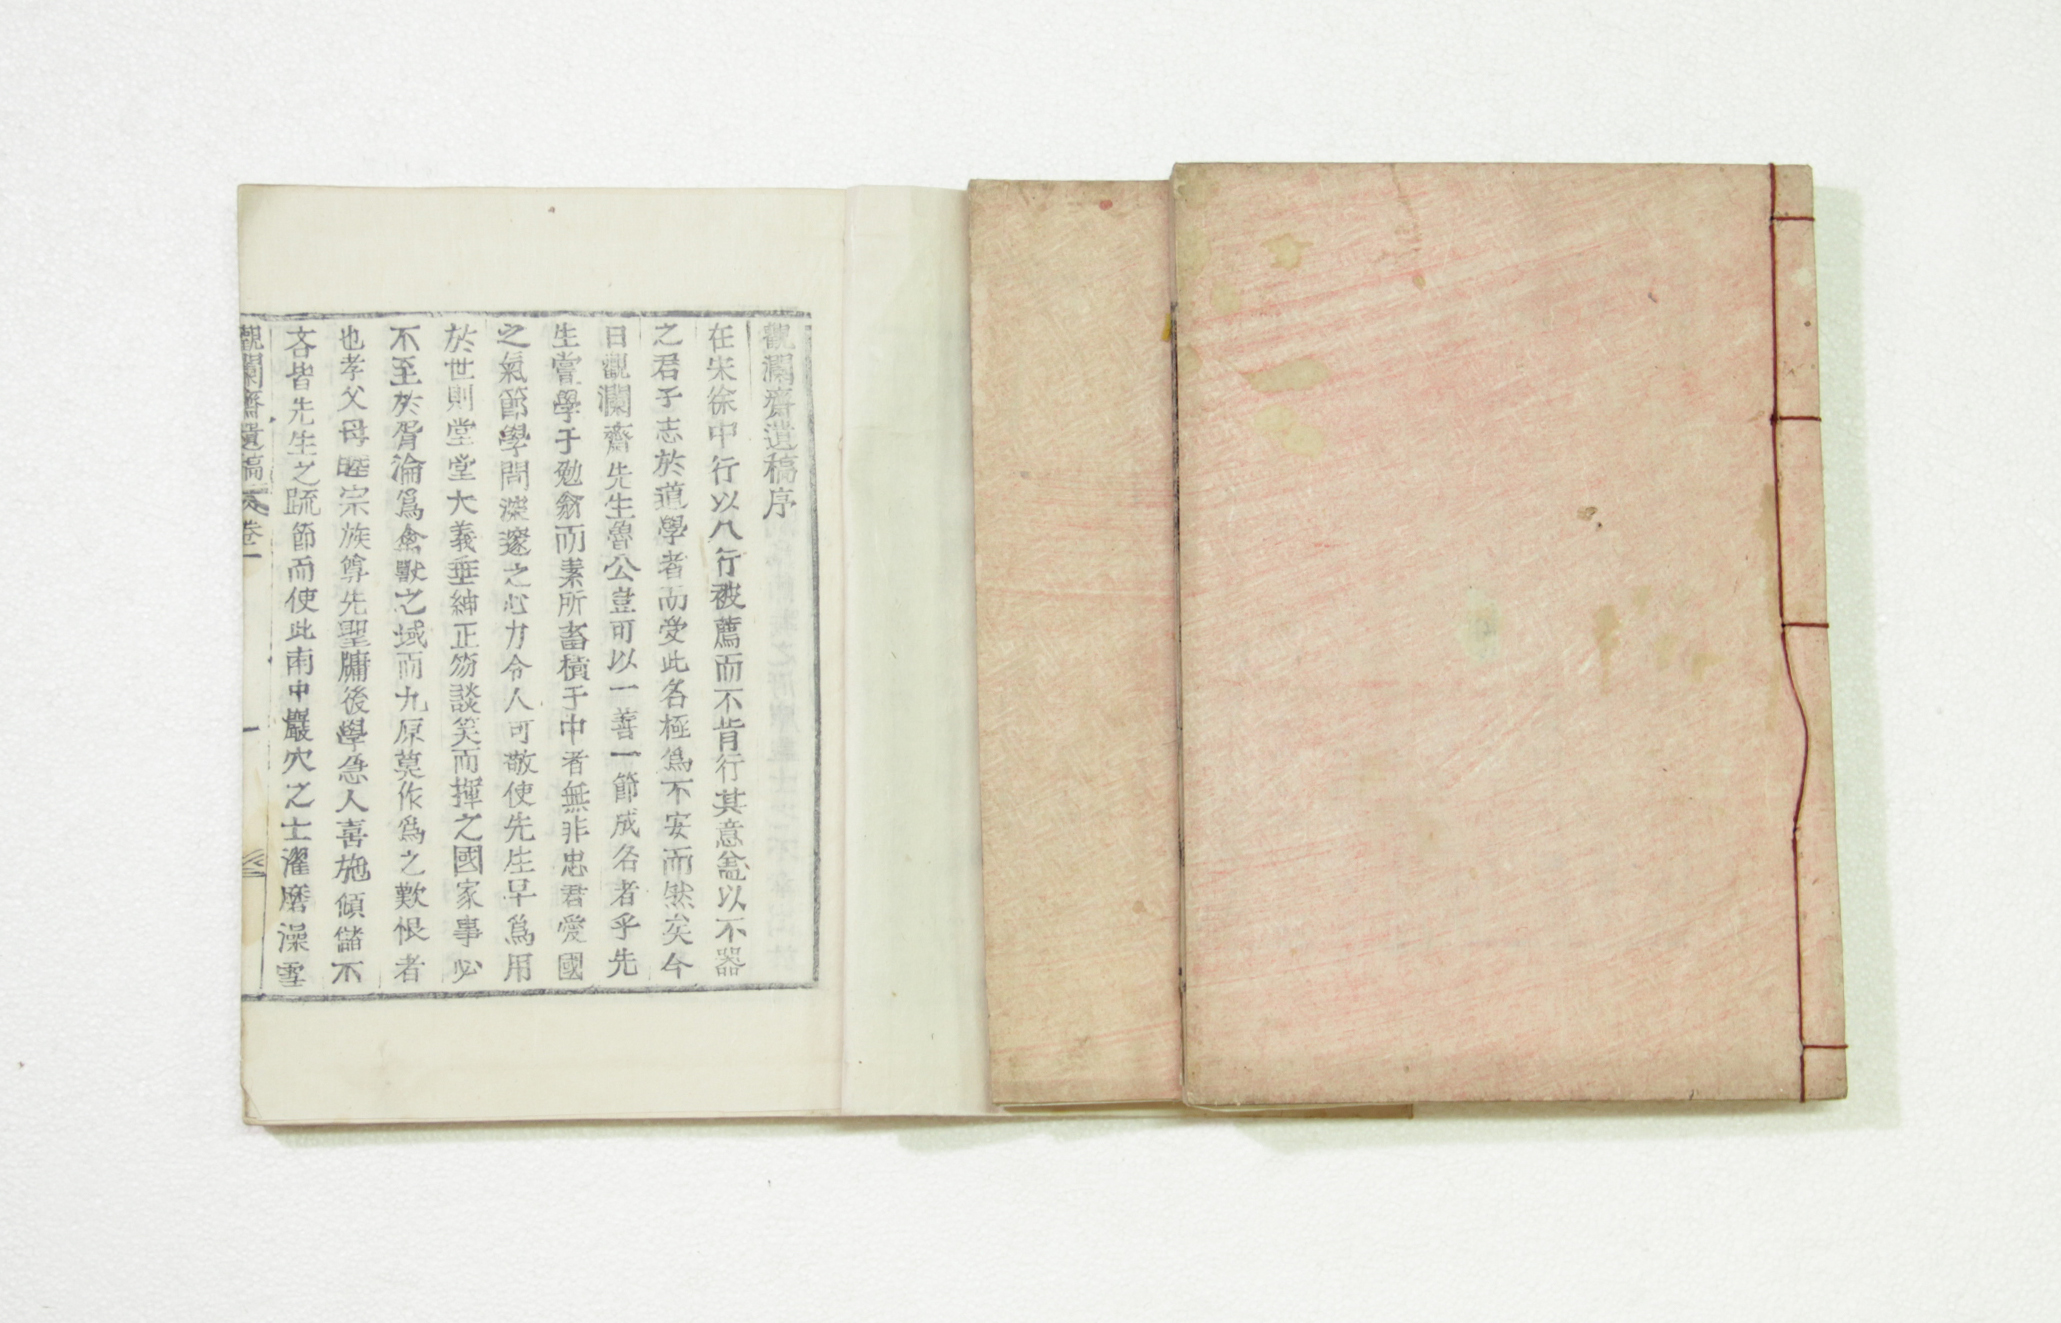 觀瀾齋遺稿序
在宋徐中行以八行被薦而不肯行其意盖以不器
之君子志於道學者而受此名極爲不安而然矣今
曰觀瀾齋先生魯公豈可以一善一節成名者乎先
生嘗學于勉翁而素所畜積于中者無非忠君愛國
之氣節學問深邃之心力令人可敬使先生早爲用
於世則堂堂大義垂紳正笏談笑而揮之國家事必
不至於胥淪爲禽獸之域而九原莫作爲之歎恨者
也孝父母睦宗族尊先聖牖後學急人喜施傾儲不
吝皆先生之䟽節而使此南中巖穴之士濯磨澡雪
觀瀾齋遺稿 卷一 一